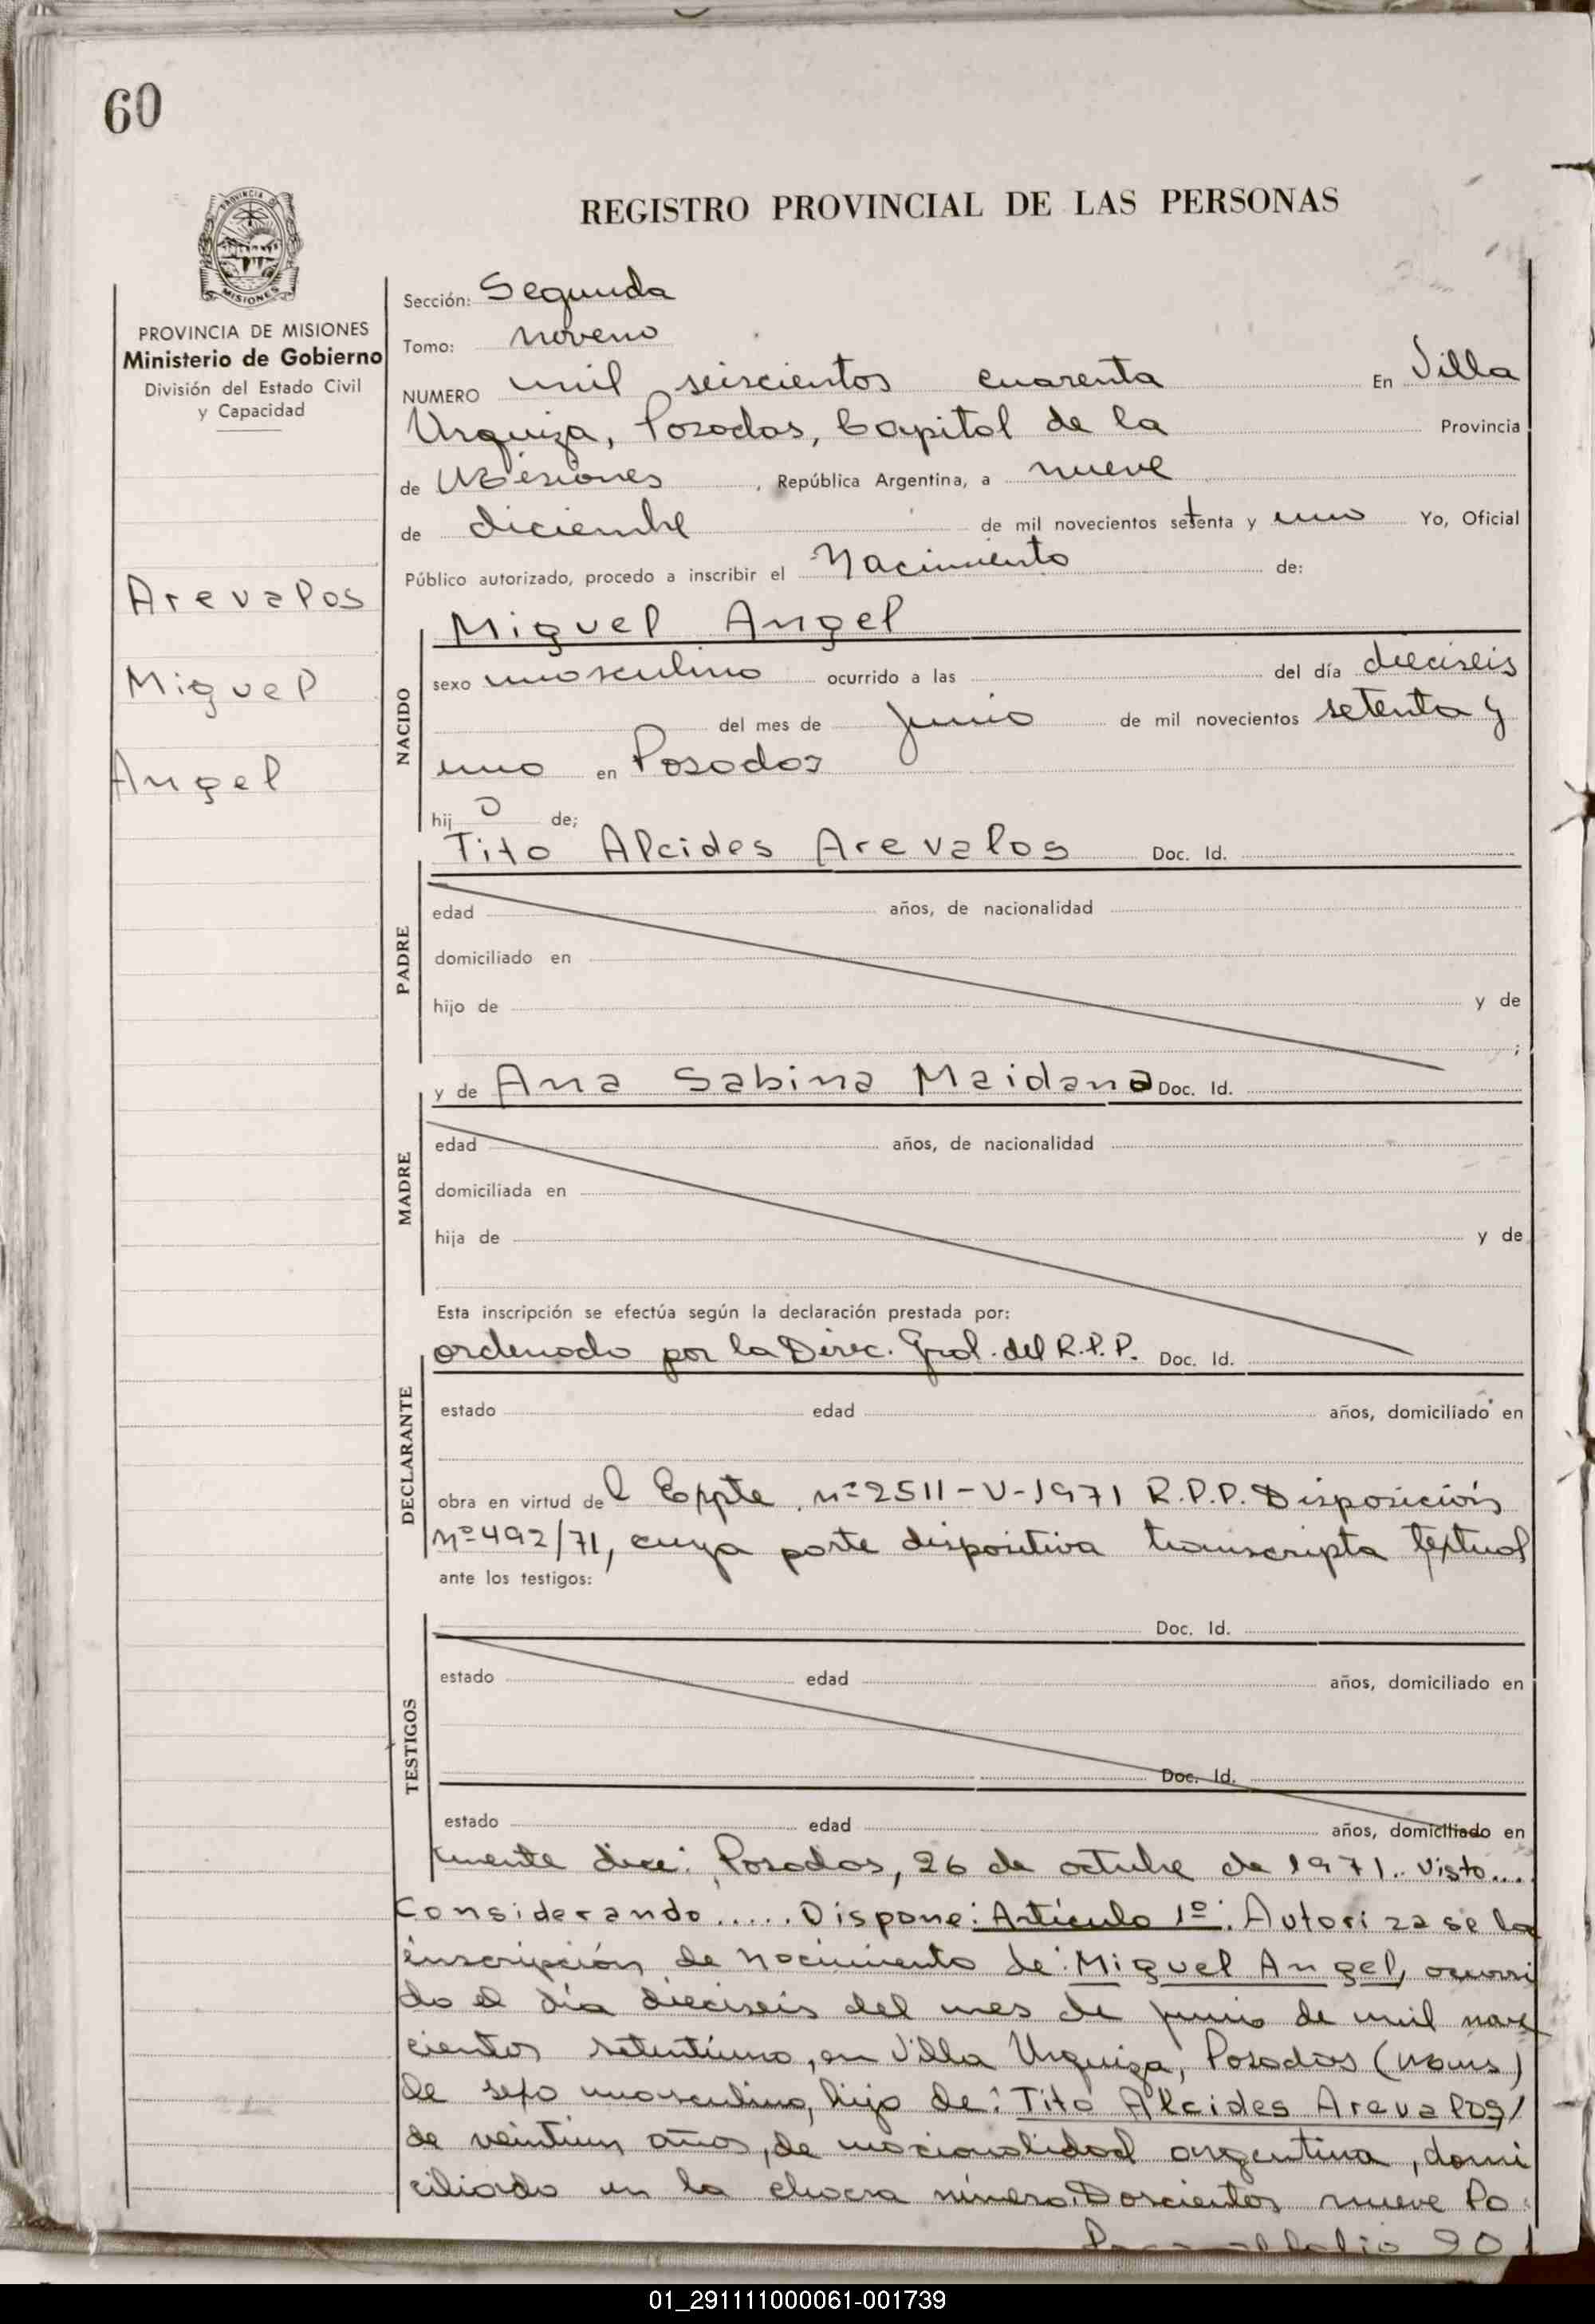 60
PROVINCIA
MISIONES
REGISTRO PROVINCIAL DE LAS PERSONAS
PROVINCIA DE MISIONES
Ministerio de Gobierno
División del Estado Civil
y Capacidad
Arevalos
Miguel
Angel
Sección: Segunda
Tomo: noveno
NUMERO mil seiscientos cuarenta En Villa
Urquiza, Posadas, Capital de la Provincia
de Misiones, República Argentina, a nueve
de diciembre de mil novecientos setenta y uno Yo, Oficial
Público autorizado, procedo a inscribir el Nacimiento de:
NACIDO
Miguel Angel
sexo masculino ocurrido a las del día dieciseis
del mes de junio de mil novecientos setenta y
uno en Posadas
hijo de;
Tito Alcides Arevalos Doc. Id.
PADRE
edad años, de nacionalidad
domiciliado en
hijo de y de
;
y de Ana Sabina Maidana Doc. Id.
MADRE
edad años, de nacionalidad
domiciliada en
hija de y de
Esta inscripción se efectúa según la declaración prestada por:
ordenado por la Direc. Gral. del R.P.P. Doc. Id.
DECLARANTE
estado edad años, domiciliado en
obra en virtud del Expte. nº 2511-V-1971 R.P.P. Disposición
nº 492/71, cuya parte dispositiva transcripta textual
ante los testigos:
TESTIGOS
Doc. Id.
estado edad años, domiciliado en
Doc. Id.
estado edad años, domiciliado en
mente dice: Posadas, 26 de octubre de 1971.. Visto...
Considerando..... Dispone: Artículo 1º: Autorizase la
inscripción de nacimiento de: Miguel Angel, ocurri
do el día dieciseis del mes de junio de mil nove
cientos setentiuno, en Villa Urquiza, Posadas (Mnes)
de sexo masculino, hijo de: Tito Alcides Arevalos/
de veintiun años, de nacionalidad argentina, domi
ciliado en la chacra número Doscientos nueve Po
01_291111000061-001739